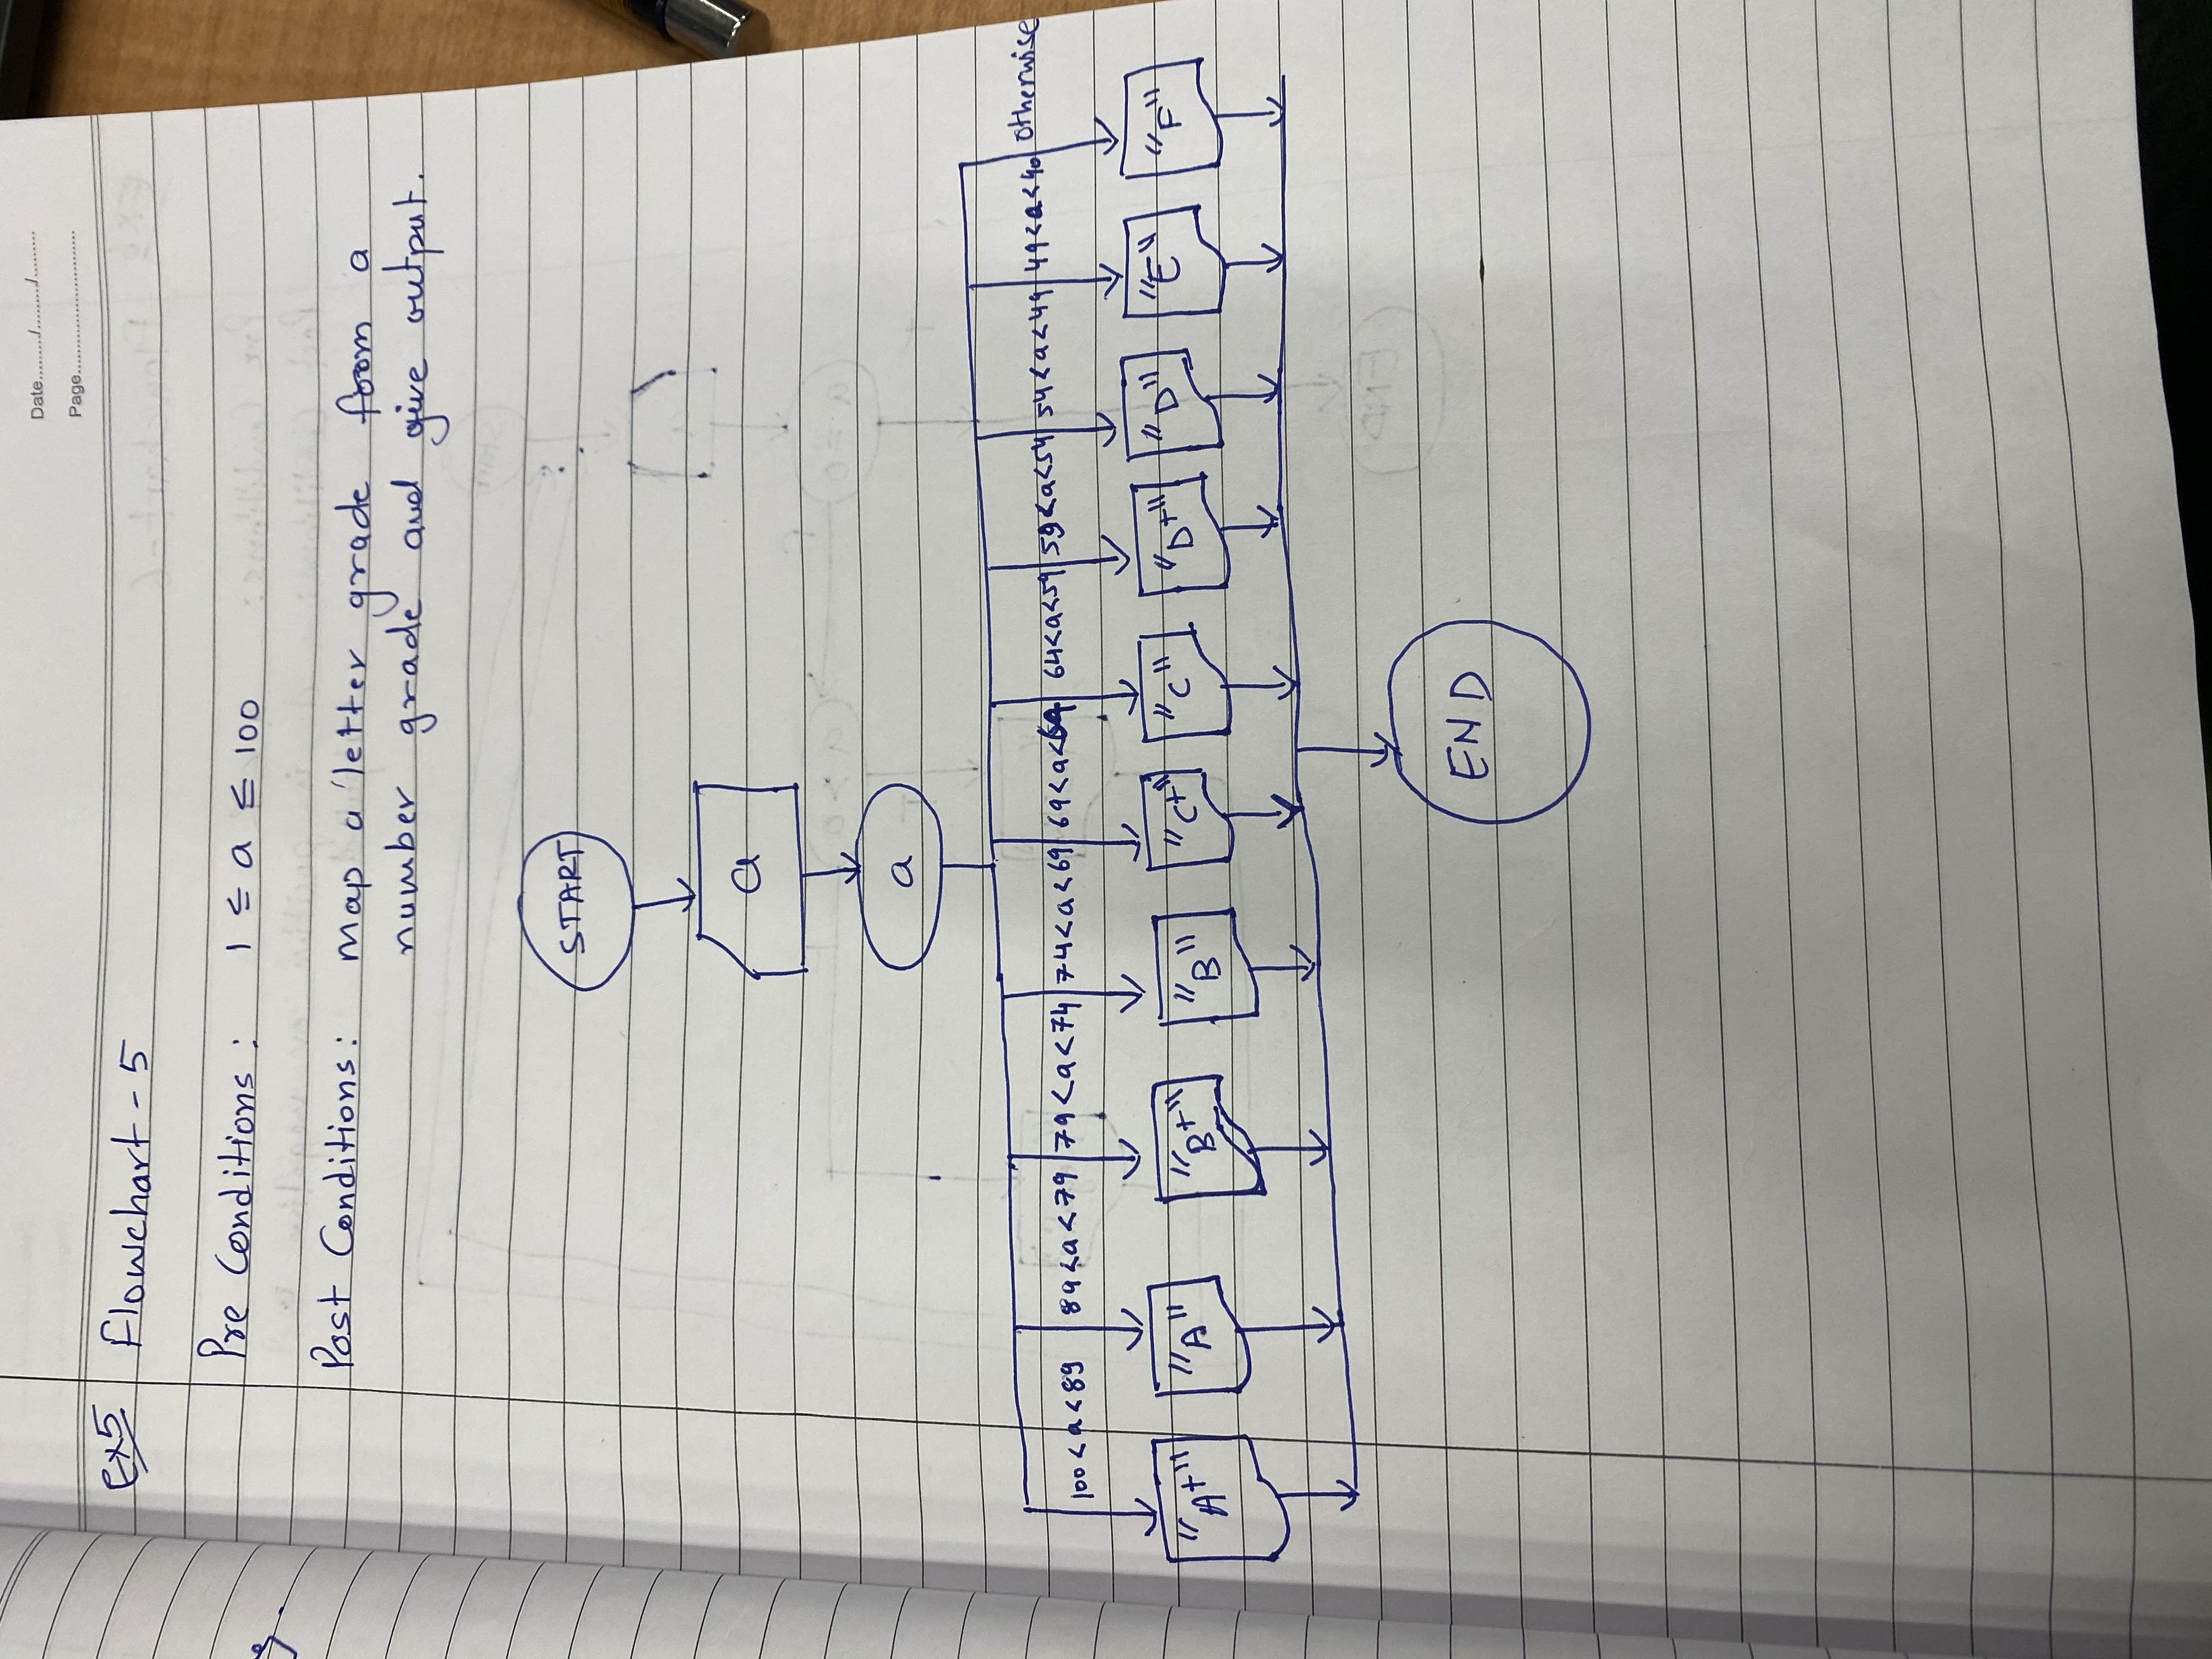 Date........./........./.........
Page..............................
Ex5 Flowchart - 5
Pre Conditions : 1 ≤ a ≤ 100
Post Conditions : map a letter grade from a
number grade and give output.
START
a
a
100 < a < 89 89 < a < 79 79 < a < 74 74 < a < 69 69 < a < 64 64 < a < 59 59 < a < 54 54 < a < 49 49 < a < 40 otherwise
"A+" "A" "B+" "B" "C+" "C" "D+" "D" "E" "F"
END